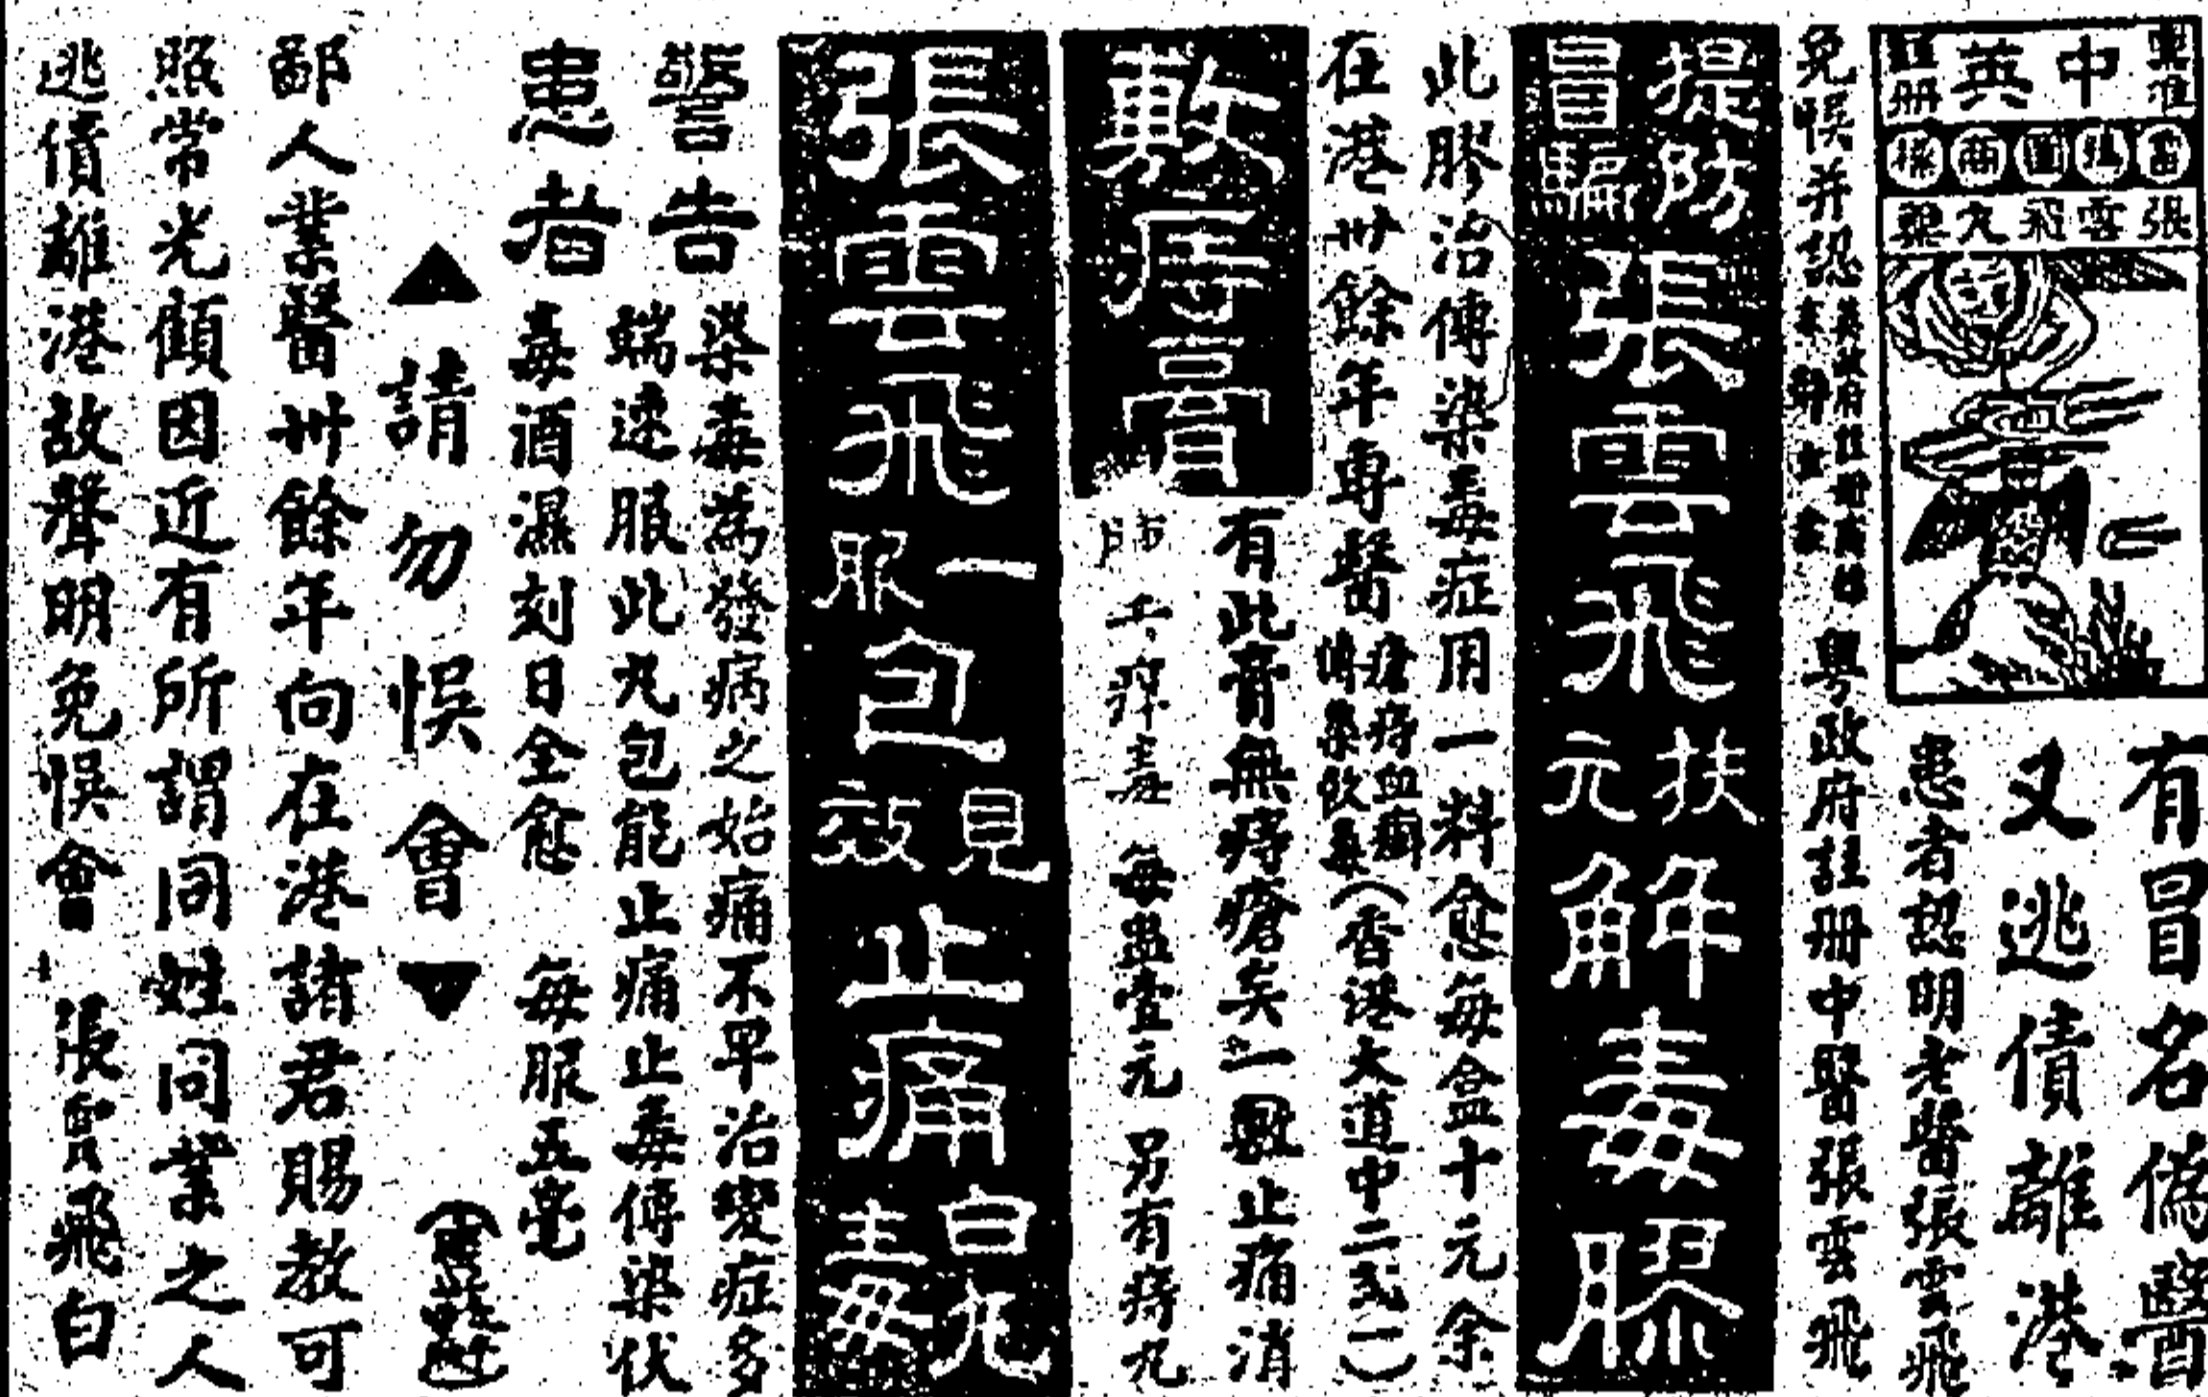 中英
註冊
商標
張雲飛大藥
有冒名偽醫
又逃債離港
患者認明老醫張雲飛
免悞并認
英政府註冊商標
粵政府註冊中醫張雲飛
提防冒騙
張雲飛扶元解毒膠
此膠治傳染毒症用一料愈每盒十元余
在港卅餘年專醫
瘡痔血癬
傳染飲毒
(香港大道中二弍一)
敷痔膏
有此膏無痔瘡矣一敷止痛消
毒每盅壹元另有痔丸
張雲飛一服包見效止痛白丸
警告患者
染毒為發病之始痛不早治變症多
端速服此丸包能止痛止毒傳染伏
毒酒濕刻日全愈 每服五毫
▲請勿悞會▼
鄙人業醫卅餘年向在港諸君賜教可
照常光顧因近有所謂同姓同業之人
逃債離港故聲明免悞會 張雲飛白